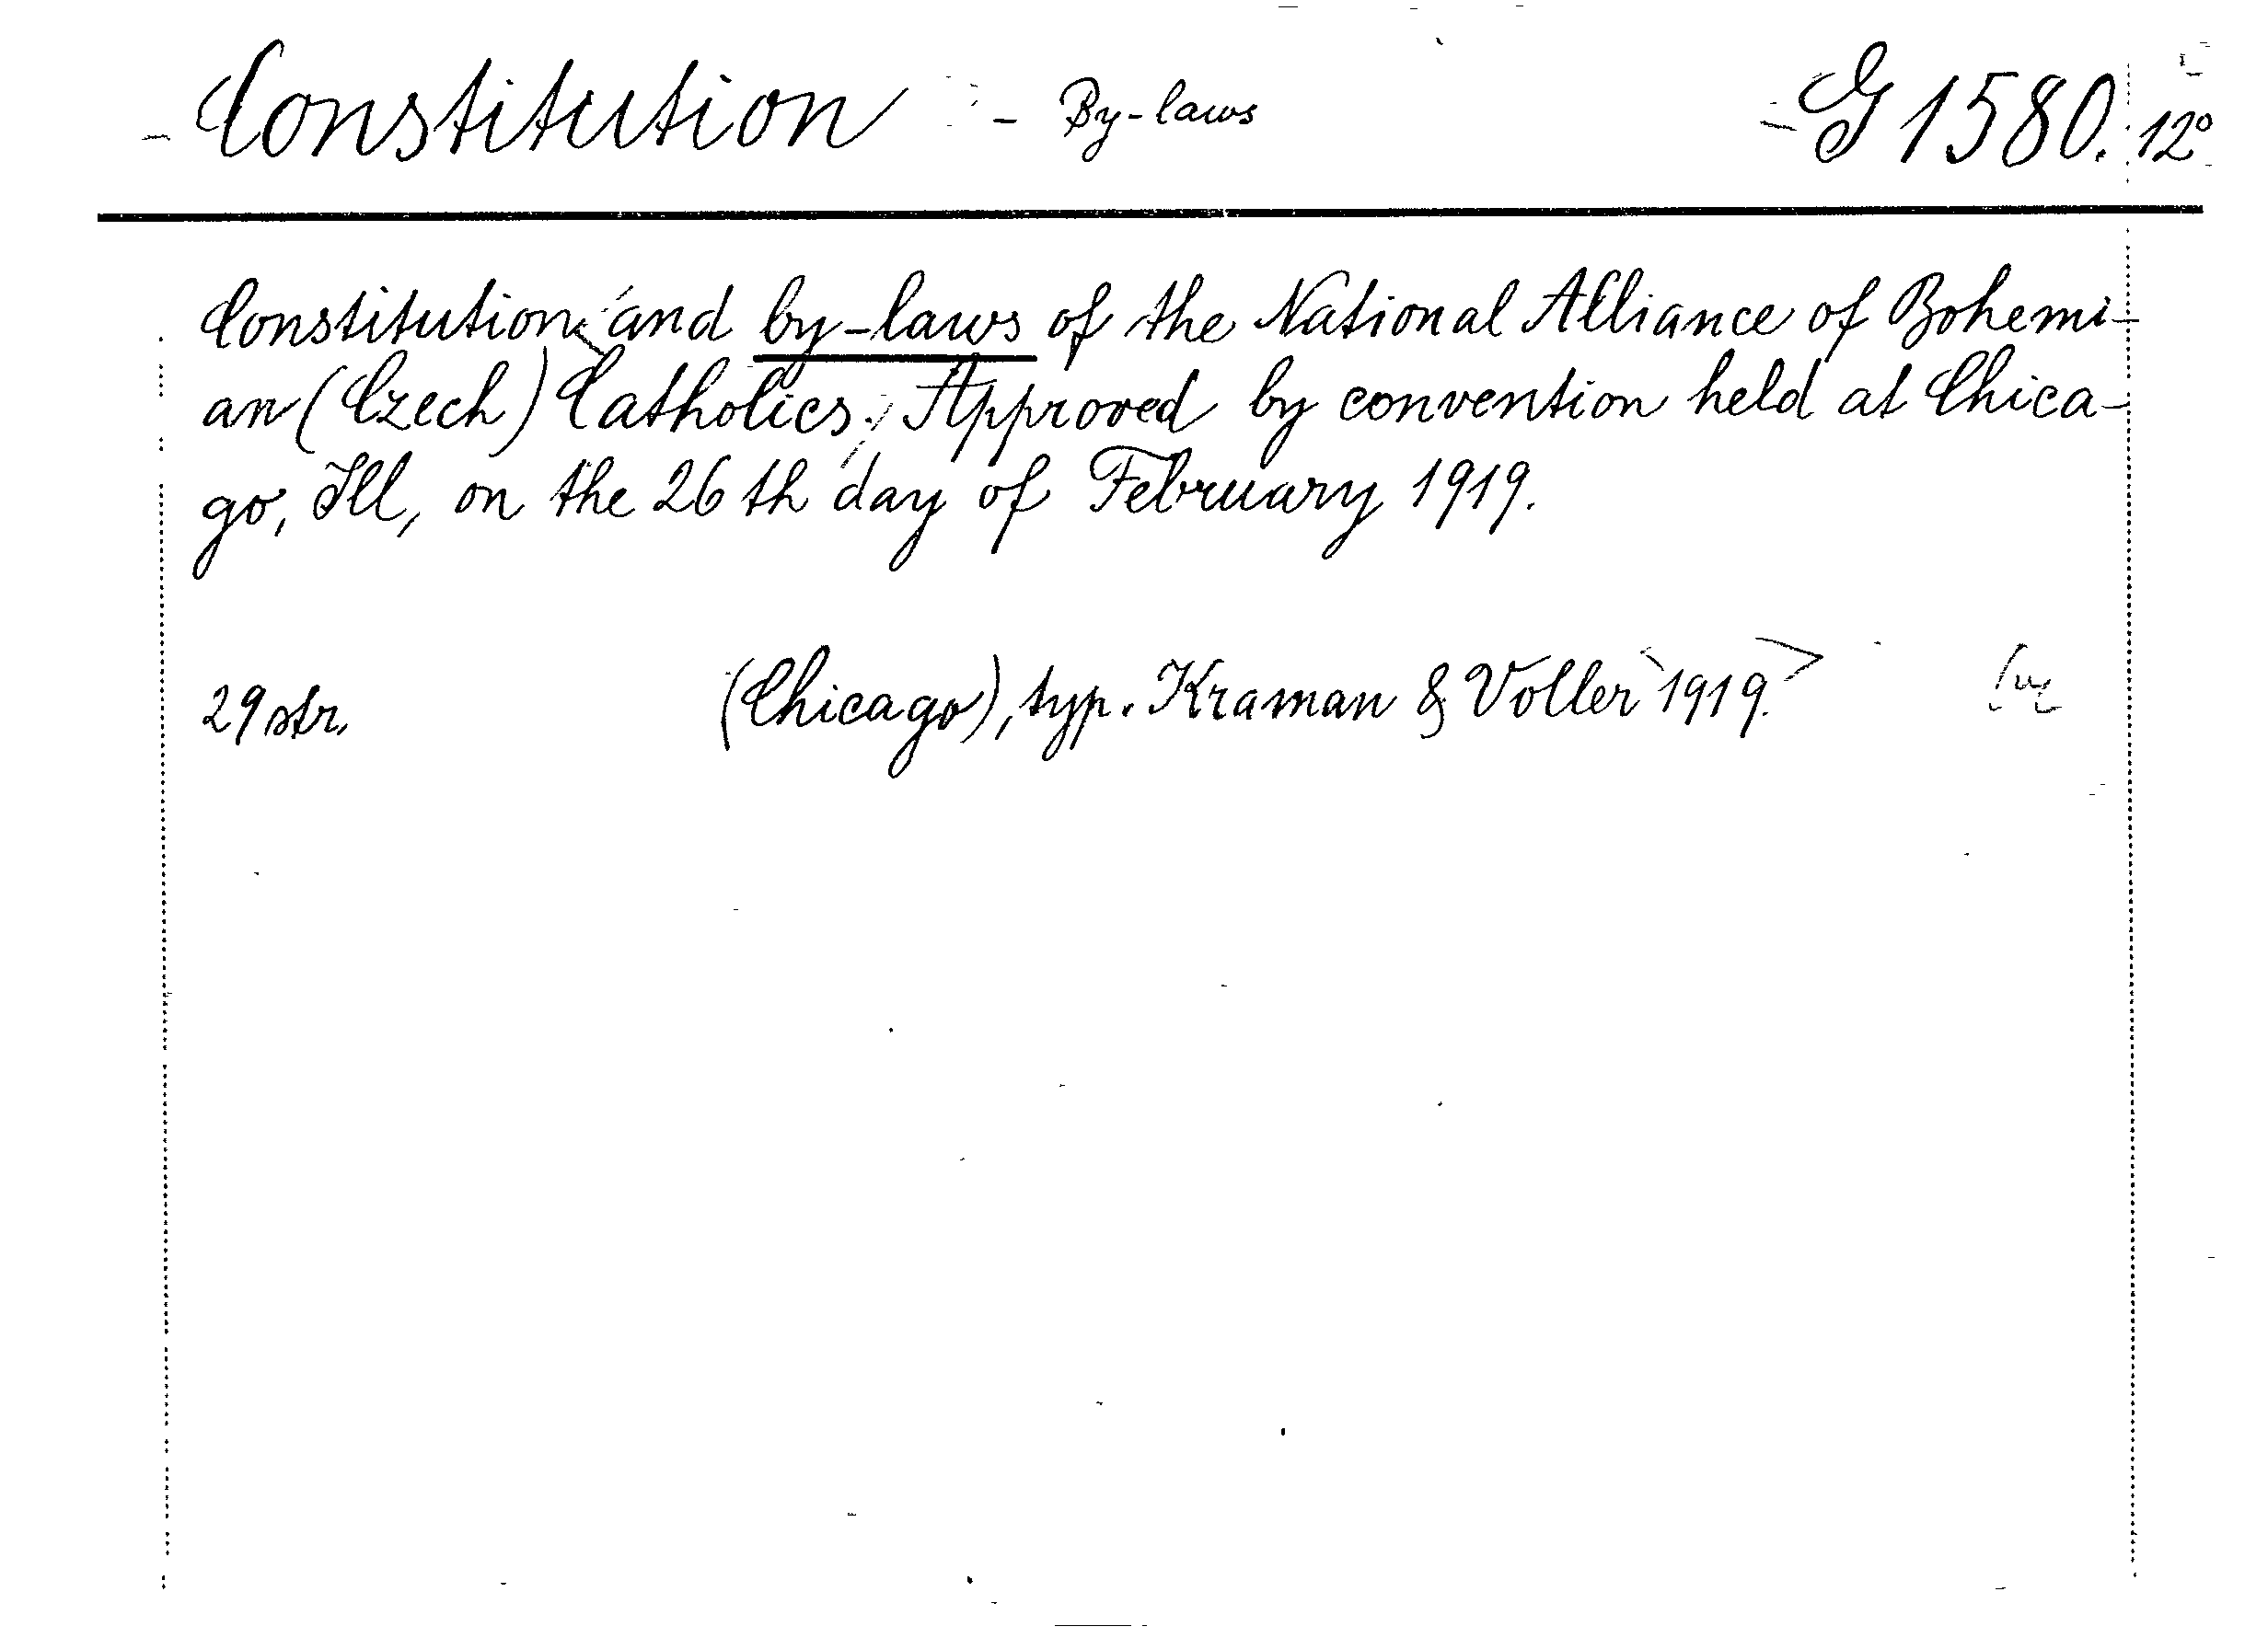 Constitution - By-laws G 1580. 12°
Constitution and by-laws of the National Alliance of Bohemi-
an (Czech) Catholics. Approved by convention held at Chica-
go, Ill, on the 26 th day of February 1919.
29 str. (Chicago), typ. Kraman & Voller 1919.